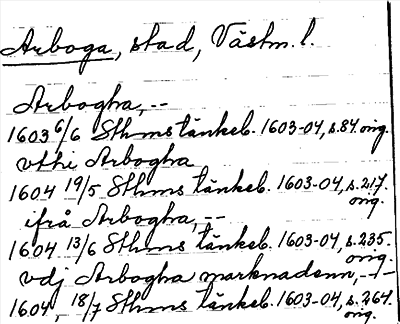 Arboga, stad, Västm. l.
Arbogha, --
1603 6/6 Sthms tänkeb. 1603-04, s. 84. orig.
vthi Arbogha
1604 19/5 Sthms tänkeb. 1603-04, s. 217.
orig.
ifrå Arbogha, --
1604 13/6 Sthms tänkeb. 1603-04, s. 235.
orig.
vdj Arbogha marknadenn, -1-
1604, 18/7 Sthms tänkeb. 1603-04, s. 264.
orig.